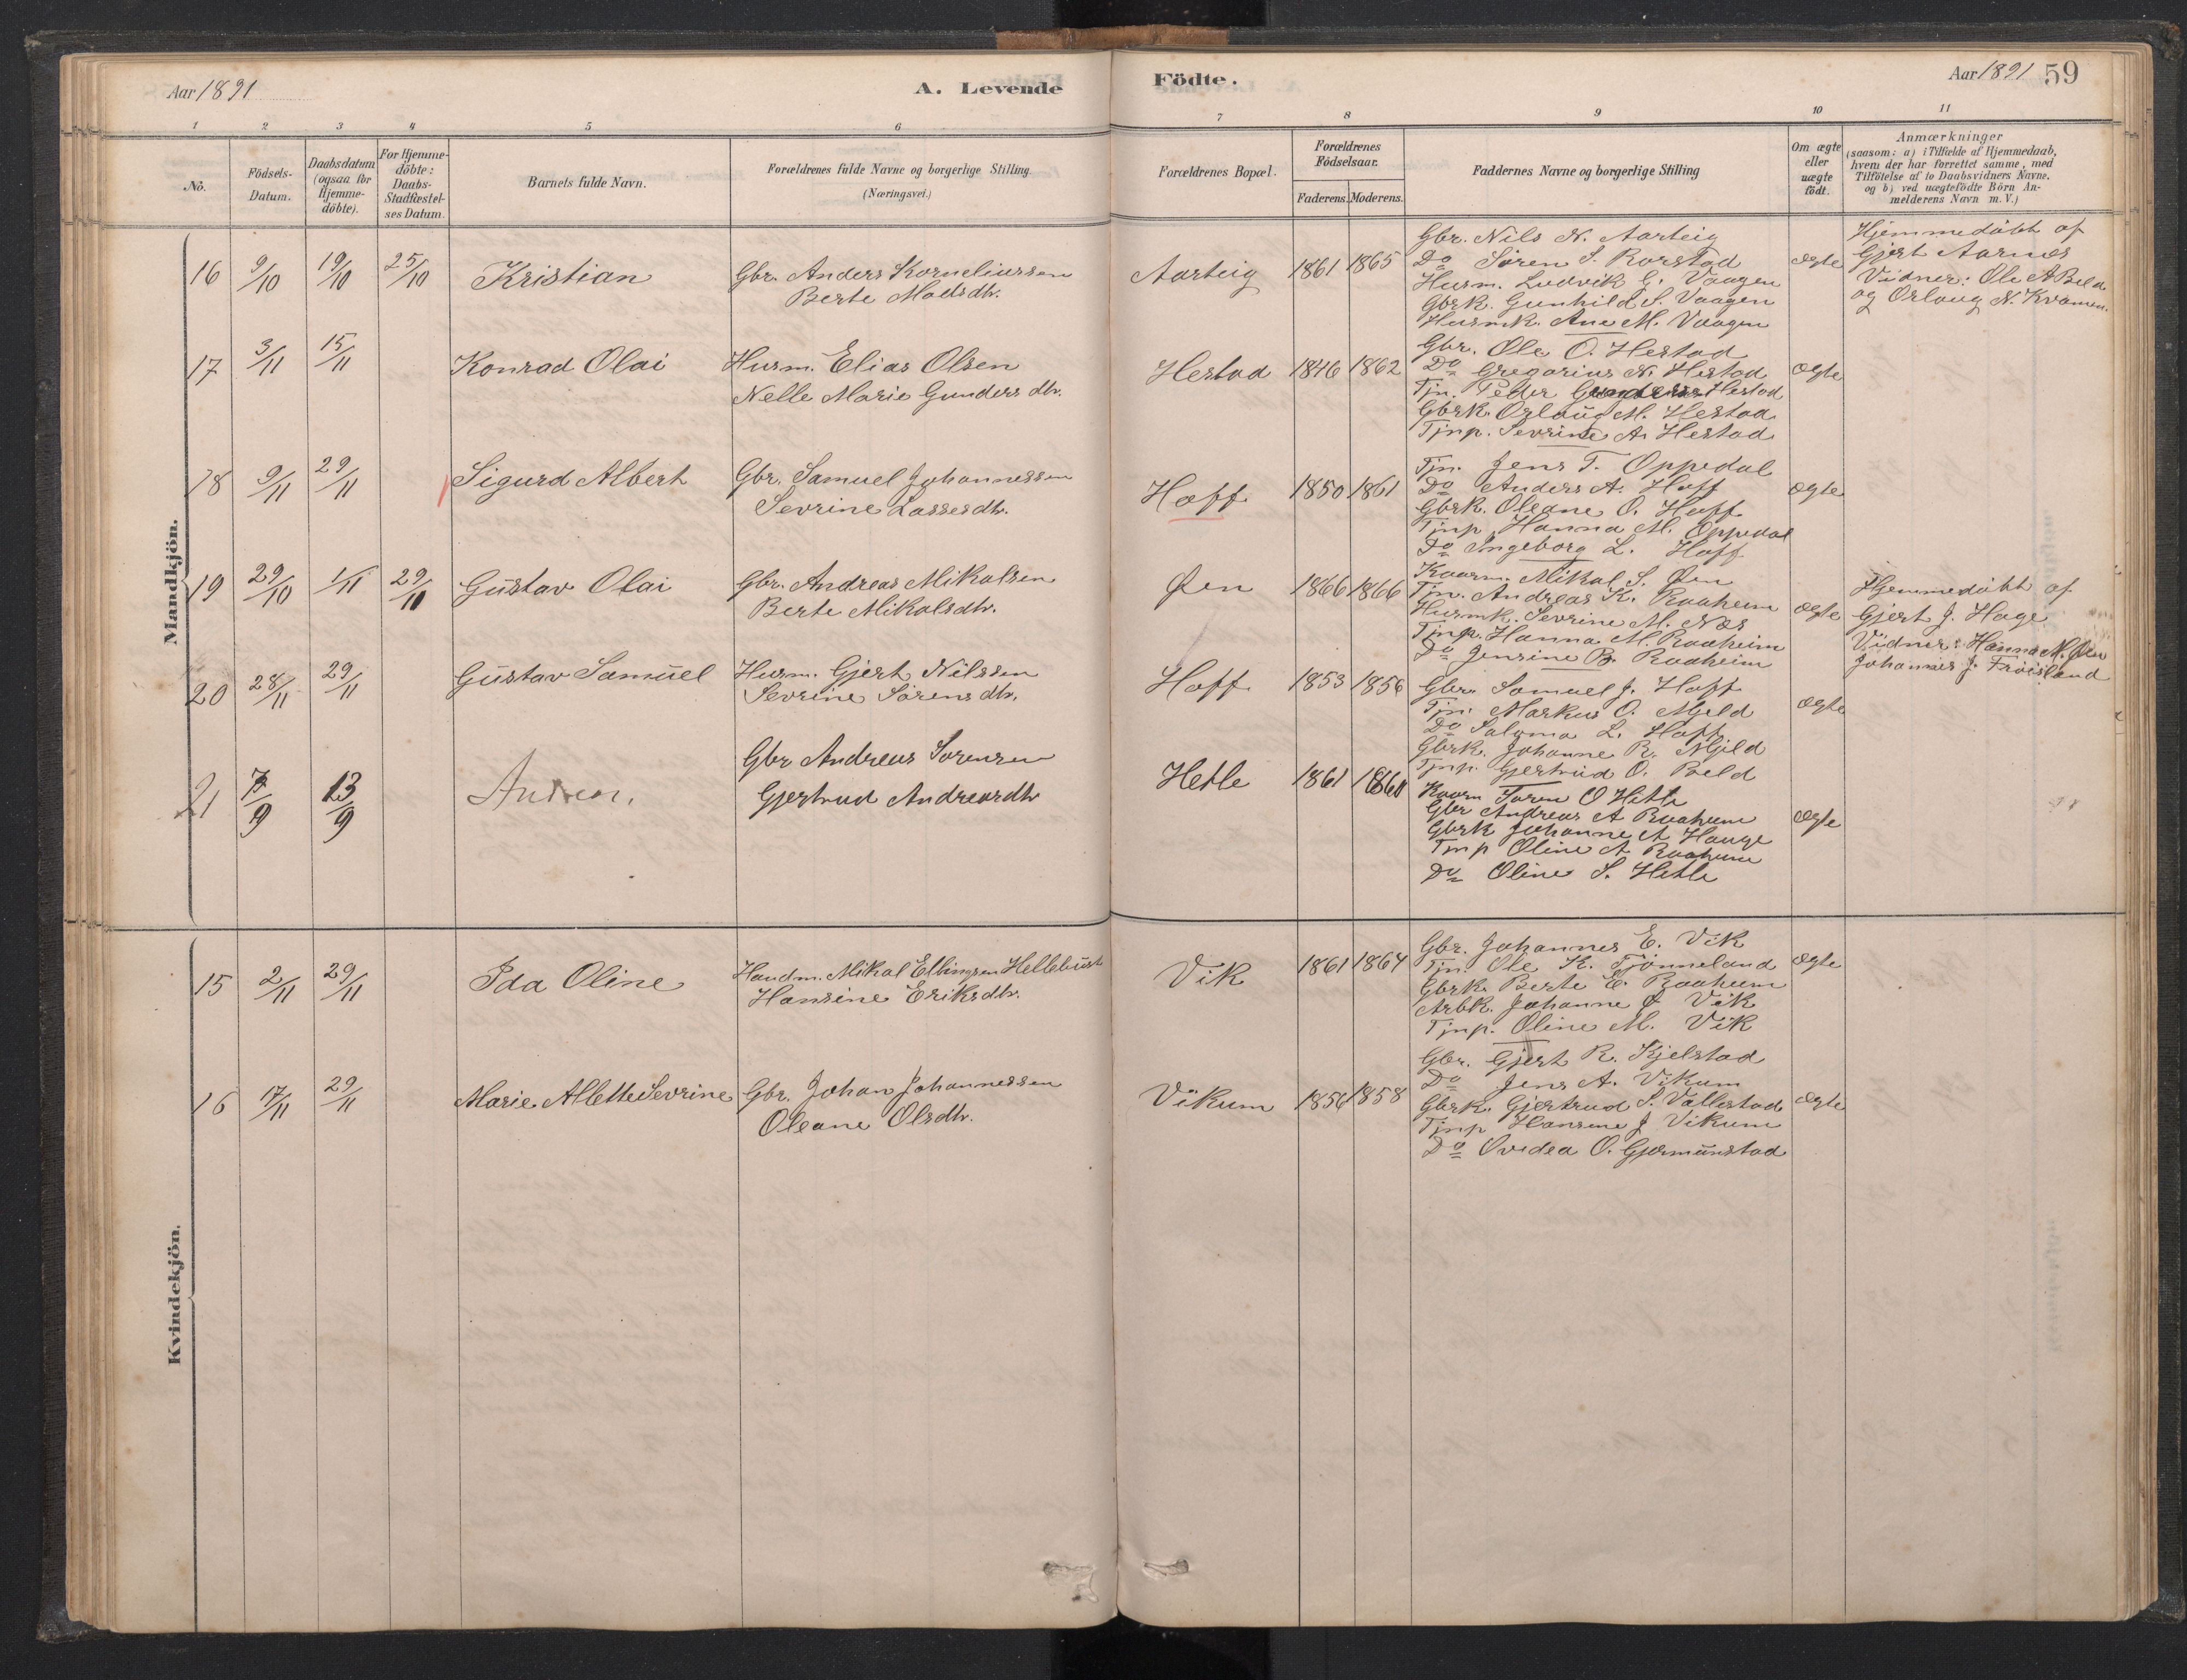 Aar 1891
A. Levende
Födte.
Aar 1891 59
1 2 3 4 5 6 7 8 9 10 11
No.
Födsels-Datum.
Daabsdatum (ogsaa for Hjemme-döbte).
For Hjemme-döbte: Daabs-Stadfæstel-ses Datum.
Barnets fulde Navn.
Forældrenes fulde Navne og borgerlige Stilling.
(Næringsvei.)
Forældrenes Bopæl.
Forældrenes Födselsaar.
Faderens. Moderens.
Faddernes Navne og borgerlige Stilling
Om ægte eller uægte födt.
Anmærkninger
(saasom: a) i Tilfælde af Hjemmedaab,
hvem der har forrettet samme, med
Tilföielse af to Daabsvidners Navne,
og b) ved uægtefödte Börn An-
melderens Navn m. V.)
Mandkjön.
16 9/10 19/10 25/10 Kristian
Gbr. Anders Korneliussen
Berte Madsdtr.
Aarteig 1861 1865
Gbr. Nils N. Aarteig
Do Søren S. Rorstad
Husm. Ludvik G. Vaagen
Gbrk. Gunhild S. Vaagen
Husmk. Ane M. Vaagen
ægte
Hjemmedøbt af
Gjert Aarnes
Vidner: Ole A Beld
og Orlaug N. Kvamen.
17 3/11 15/11 Konrad Olai
Husm. Elias Olsen
Nelle Marie Gunders dtr.
Hestad 1846 1862
Gbr. Ole O. Hestad
Do Gregorius N. Hestad
Tjn. Peder Hestad
Gbrk. Orlaug M. Hestad
Tjnp. Sevrine A. Hestad
ægte
18 9/11 29/11 Sigurd Albert
Gbr. Samuel Johannessen
Sevrine Lassesdtr.
Hoff 1850 1861
Tjn. Jens T. Oppedal
Do Anders A. Hoff
Gbrk. Oleane O. Hoff
Tjnp. Hanna M. Oppedal
Do Ingeborg L. Hoff
ægte
19 29/10 1/11 29/10 Gustav Olai
Gbr. Andreas Mikalsen
Berte Mikalsdtr.
Øen 1866 1866
Kaarm. Mikal S. Øen
Tjn. Andreas K. Raaheim
Husmk. Sevrine M. Nes
Tjnp. Hanna M. Raaheim
Do Jensine B. Raaheim
ægte
Hjemmedøbt af
Gjert J. Hage
Vidner: Hanna M. Øen
Johannes J. Frøisland
20 28/11 29/11 Gustav Samuel
Husm. Gjert Nilssen
Sevrine Sørens dtr.
Hoff 1853 1856
Gbr. Samuel J. Hoff
Tjn. Markus O. Mjeld
Do Saloma L. Hoff
Gbrk. Johanne R. Mjeld
Tjnp. Gjertrud O. Beld
ægte
21 7/9 13/9 Andreas
Gbr Andreas Sorensen
Gjertrud Andreasdtr
Hetle 1861 1860
Kaarm Soren O Hetle
Gbr Andreas A Raaheim
Gbrk Johanne A Hauge
Tjnp Oline A Raaheim
Do Oline S. Hetle
ægte
Kvindekjön.
15 2/11 29/11 Ida Oline
Handm. Mikal Ellingsen Hellebust
Hansine Eriksdtr.
Vik 1861 1864
Gbr. Johannes E. Vik
Tjn. Ole K. Tjønneland
Gbrk. Berte E. Raaheim
Arbk. Johanne J Vik
Tjnp. Oline M. Vik
ægte
16 17/11 29/11 Marie Alette Sevrine
Gbr. Johan Johannessen
Oleane Olsdtr.
Vikum 1856 1858
Gbr. Gjert R. Kjelstad
Do Jens A. Vikum
Gbrk. Gjertrud S. Vallestad
Tjnp Hansine J Vikum
Do Ovidea O. Gjermunstad
ægte